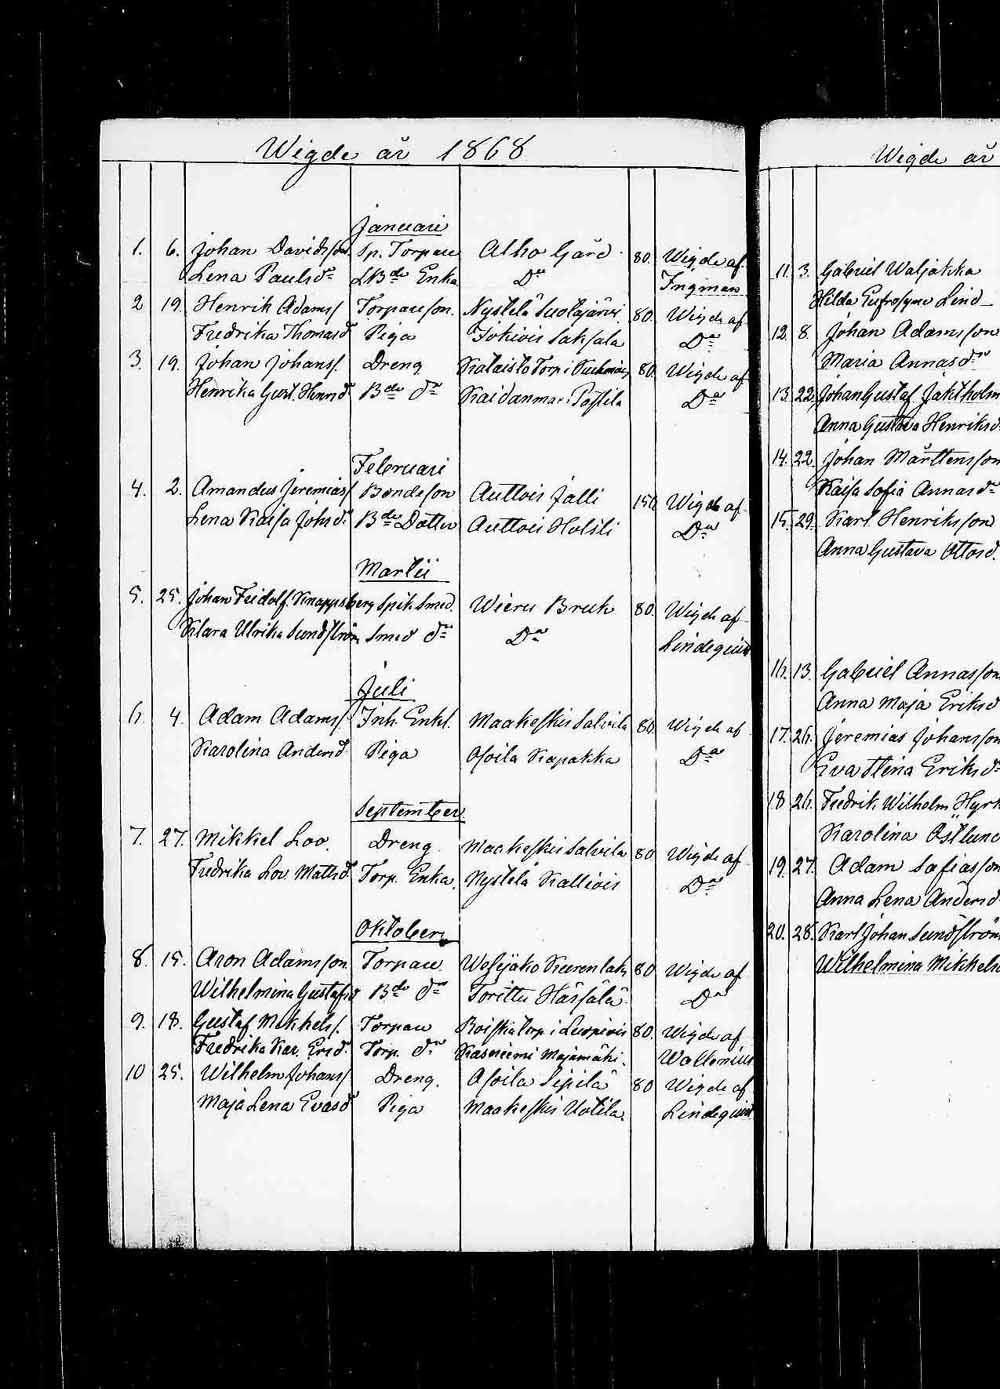 Wigde år 1868
Januari
1. 6. Johan Davidsson Sp. Torpare Alho Gård 80. Wigde af
Lena Paulsdr Enka Do Ingman
2 19. Henrik Adams/ Torpareson. Nystelä 80. Wigde af
Fredrika Thomasd Piga Jokiois Saksala Do
3. 19. Johan Johans/. Dreng 80. Wigde af
Henrika Gust. Bde dr Do
Februari
4. 2. Amandus Jeremias/ Bondeson Auttois Jalli 150. Wigde af
Lena Kaisa Johsdr Bde Dotter Auttois Holsti Do
Martii
5. 25. Johan Fridolf. Knappsberg Spik Smed. Wieru Bruk 80. Wigde af
Klara Ulrika Sundström Smed dr Do Lindequist
Juli
6. 4. Adam Adams/ Inh. Enkl. Maakeskis Salvila 80. Wigde af
Karolina Andersd Piga Asoila Kapakka Do
September
7. 27. Mikkel Lov. Dreng. Maakeskis Salvila 80. Wigde af
Fredrika Lov. Mattsd. Torp. Enka. Nystelä Kalliois Do
Oktober
8. 15. Aron Adamsson Torpare 80 Wigde af
Wilhelmina Gustafsd Bde dr Torittu Hassala Do
9. 18. Gustaf Mikkels/. Torpare 80. Wigde af
Fredrika Kar. Ersd. Torp. dr Kasniemi Majamäki. Wallenius
10 25. Wilhelm Johans/ Dreng. Asoila Pipilä 80 Wigde af
Maja Lena Evasd Piga Maakeskis Uotila. Lindequist
Wigde år
11. 3. Gabriel Waljakka
Hilda Eufrosyne Lind
12. 8. Johan Adamsson
Maria Annasdr
13. 22. Johan Gustaf Jaktholm
Anna Gustava Henriksd.
14. 22. Johan Mårttensson
Kaisa Sofia Annasdr
15. 29. Karl Henriksson
Anna Gustava Ottosd.
16. 13. Gabriel Annasson
Anna Maja Eriksd
17. 26. Jeremias Johansson
Eva Stina Eriksdr
18 26. Fredrik Wilhelm Hyrk
Karolina Östlund
19. 27. Adam Safiasson
Anna Lena Andersd
20. 28. Karl Johan Sundström
Wilhelmina Mikkels